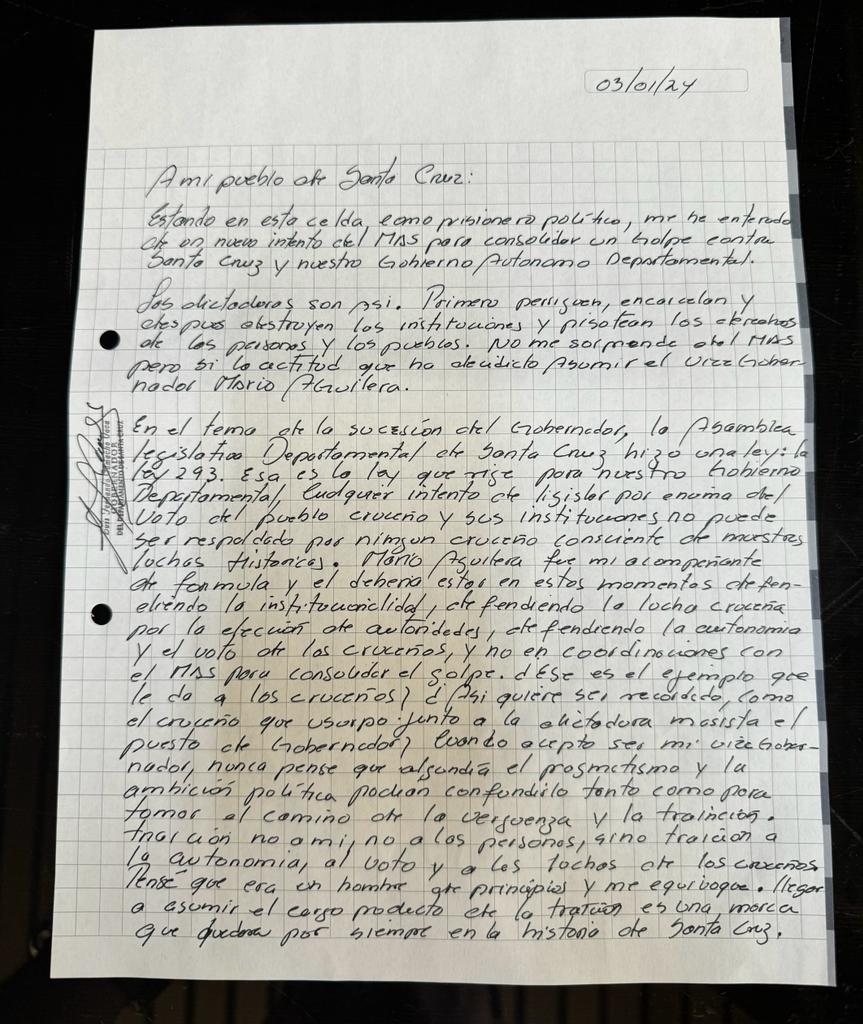 03/01/24
A mi pueblo de Santa Cruz:
Estando en esta celda, como prisionero político, me he enterado
de un nuevo intento del MAS para consolidar un Golpe contra
Santa Cruz y nuestro Gobierno Autonomo Departamental.
Las dictaduras son Asi. Primero persiguen, encarcelan y
despues destruyen las instituciones y pisotean los derechos
de las personas y los pueblos. No me sorprende del MAS
pero si la actitud que ha decidido Asumir el vice Gober-
nador Mario Aguilera.
En el tema de la sucesión del Gobernador, la Asamblea
legislativa Departamental de Santa Cruz hizo una ley: la
ley 293. Esa es la ley que rige para nuestro Gobierno
Departamental, Cualquier intento de ligislar por encima del
voto del pueblo cruceño y sus instituciones no puede
ser respaldado por ningun cruceño consciente de nuestras
luchas Historicas. Mario Aguilera fue mi acompañante
de formula y el deberia estar en estos momentos defen-
diendo la institucionalidad, defendiendo la lucha cruceña
por la elección de autoridades, defendiendo la autonomia
y el voto de los cruceños, y no en coordinaciones con
el MAS para consolidar el golpe. ¿Ese es el ejemplo que
le da a los cruceños? ¿Asi quiere ser recordado, como
el cruceño que usurpo junto a la dictadura masista el
puesto de Gobernador? Cuando acepto ser mi vice Gober-
nador, nunca pense que algun día el pragmatismo y la
ambición política podian confundirlo tanto como para
tomar el camino de la verguenza y la traición.
traición no a mi, no a las personas, sino traicion a
la autonomia, al voto y a las luchas de los cruceños.
Pensé que era un hombre de principios y me equivoque. llegar
a asumir el cargo producto de la traición es una marca
que quedara por siempre en la historia de Santa Cruz.
Luis Fernando Camacho Vaca
GOBERNADOR